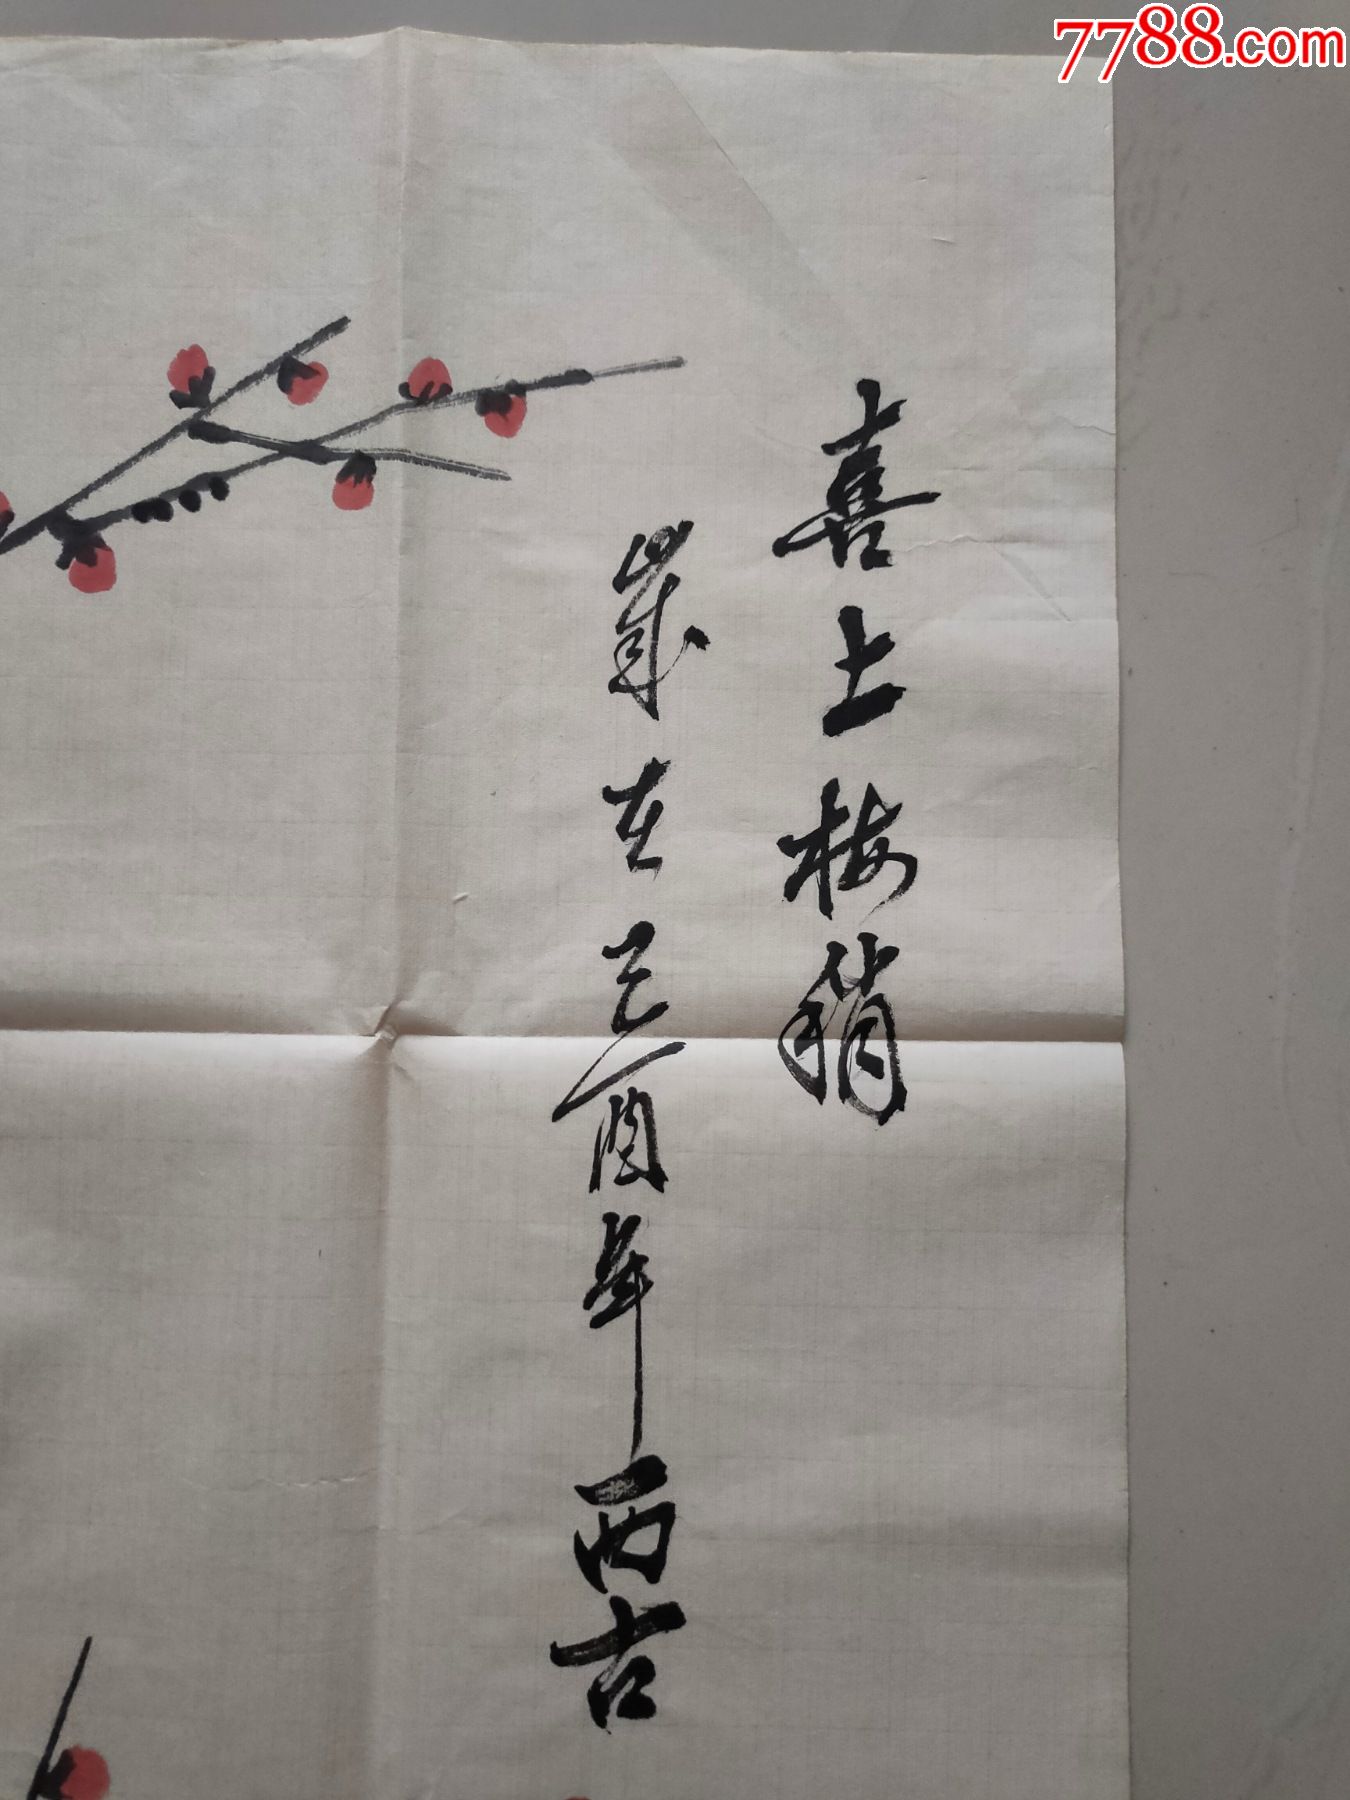 7788.com
喜上梅稍
岁在己酉年西古